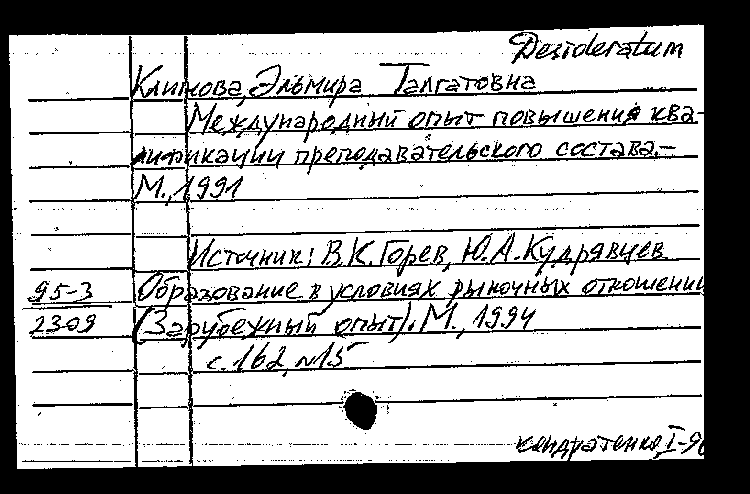 Desideratum
Климова, Эльмира Талгатовна
Международный опыт повышения ква-
лификации преподавательского состава.-
М., 1991
Источник: В.К. Горев, Ю.А. Кудрявцев
95-3 Образование в условиях рыночных отношений
2309 (Зарубежный опыт). М., 1994
с. 162, n15
Кондратенко, I-96